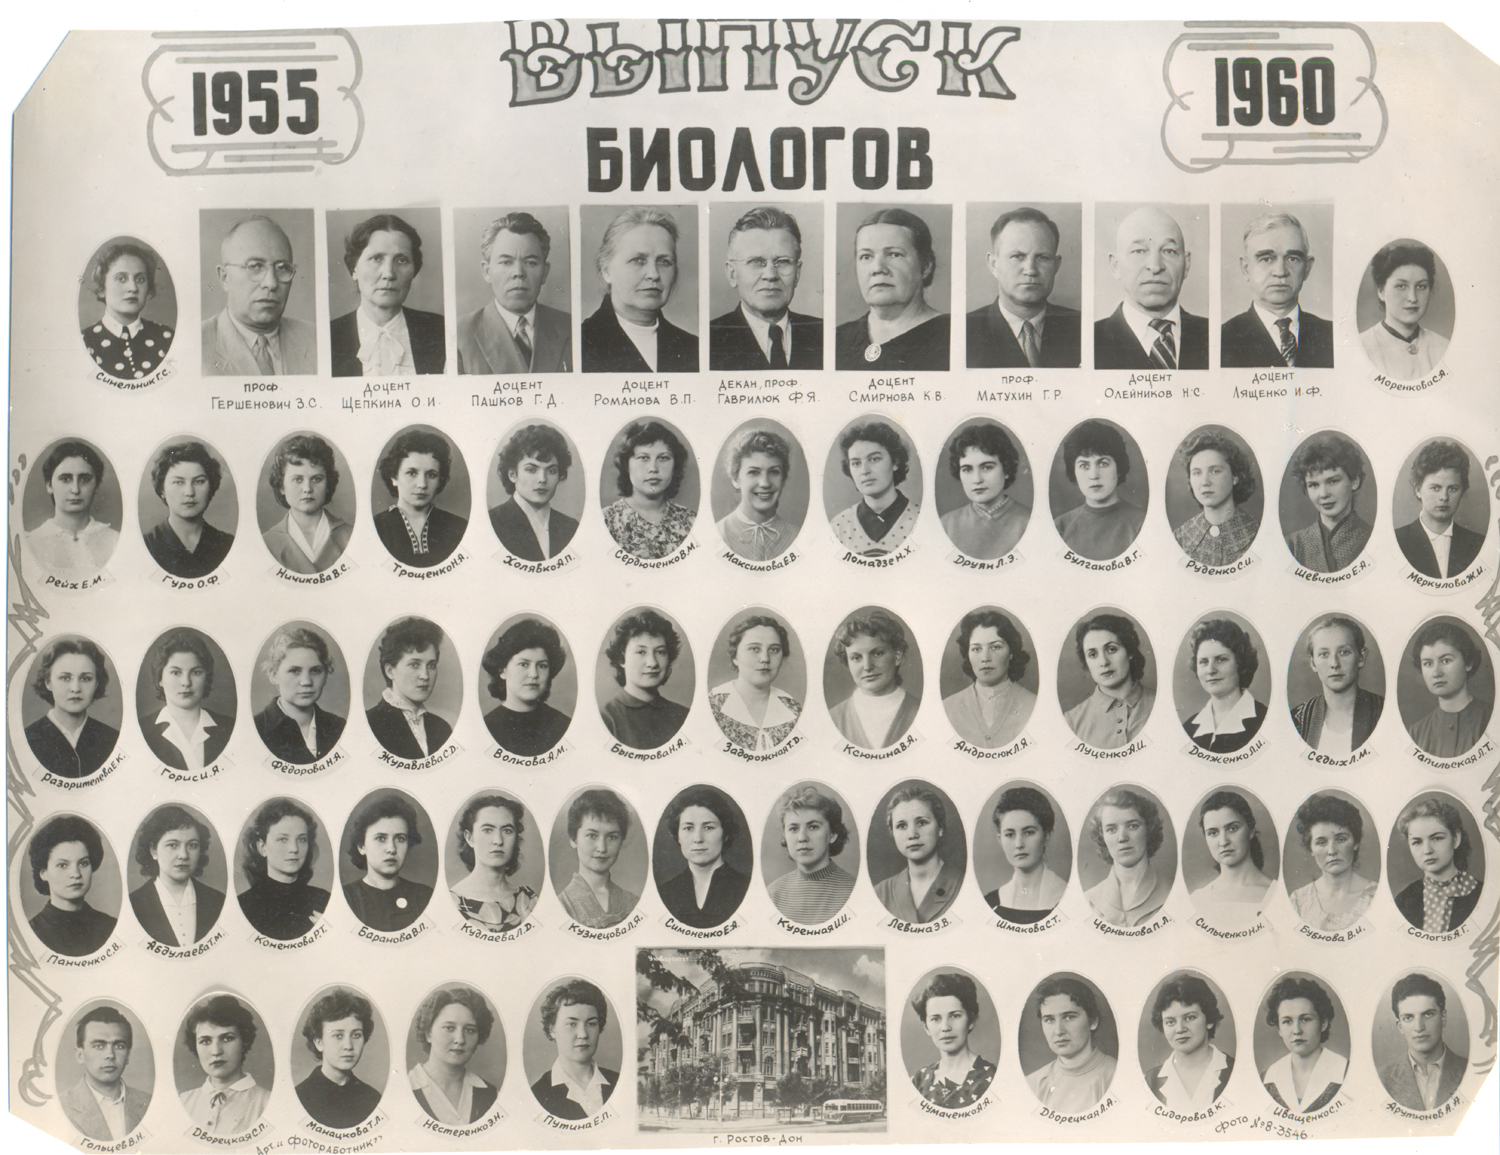 ВЫПУСК
1955
1960
БИОЛОГОВ
Синельник Г.С.
ПРОФ.
ГЕРШЕНОВИЧ З.С.
ДОЦЕНТ
ЩЕПКИНА О.И.
ДОЦЕНТ
ПАШКОВ Г.Д.
ДОЦЕНТ
РОМАНОВА В.П.
ДЕКАН, ПРОФ.
ГАВРИЛЮК Ф.Я.
ДОЦЕНТ
СМИРНОВА К.В.
ПРОФ.
МАТУХИН Г.Р.
ДОЦЕНТ
ОЛЕЙНИКОВ Н.С.
ДОЦЕНТ
ЛЯЩЕНКО И.Ф.
Моренкова С.Я.
Рейх Е.М.
Гуро О.Ф.
Ничикова В.С.
Трощенко Н.Я.
Холявко А.П.
Сердюченко В.М.
Максимова Е.В.
Ломадзе Н.Х.
Друян Л.Э.
Булгакова В.Г.
Руденко С.И.
Шевченко Е.А.
Меркулова Ж.И.
Разорителева Е.К.
Горис И.Я.
Фёдорова Н.Я.
Журавлёва С.Д.
Волкова А.М.
Быстрова Н.А.
Задорожная Т.D.
Ксюнина В.А.
Андросюк Л.Я.
Луценко А.И.
Долженко Л.И.
Седых Л.М.
Тапильская Л.Т.
Панченко С.В.
Абдулаева Т.М.
Коненкова Р.Т.
Баранова В.П.
Кудлаева Л.D.
Кузнецова Л.Я.
Симоненко Е.А.
Куренная И.И.
Левина Э.В.
Шмакова С.Т.
Чернышова П.А.
Сильченко Н.Н.
Бубнова В.И.
Сологуб А.Г.
Университет
Гольцев В.Н.
Дворецкая С.П.
Манацкова Т.Л.
Нестеренко Э.Н.
Путина Е.П.
Чумаченко А.Я.
Дворецкая Л.А.
Сидорова В.К.
Иващенко С.П.
Арутюнов А.А.
Арт. „Фотоработник"
Г. РОСТОВ-ДОН
Фото №8-3546.